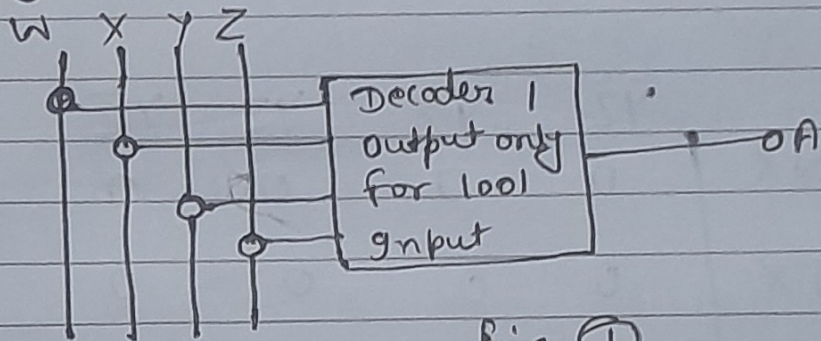 W X Y Z
Decoder 1
output only
for 1001
gnput
A
fig ①